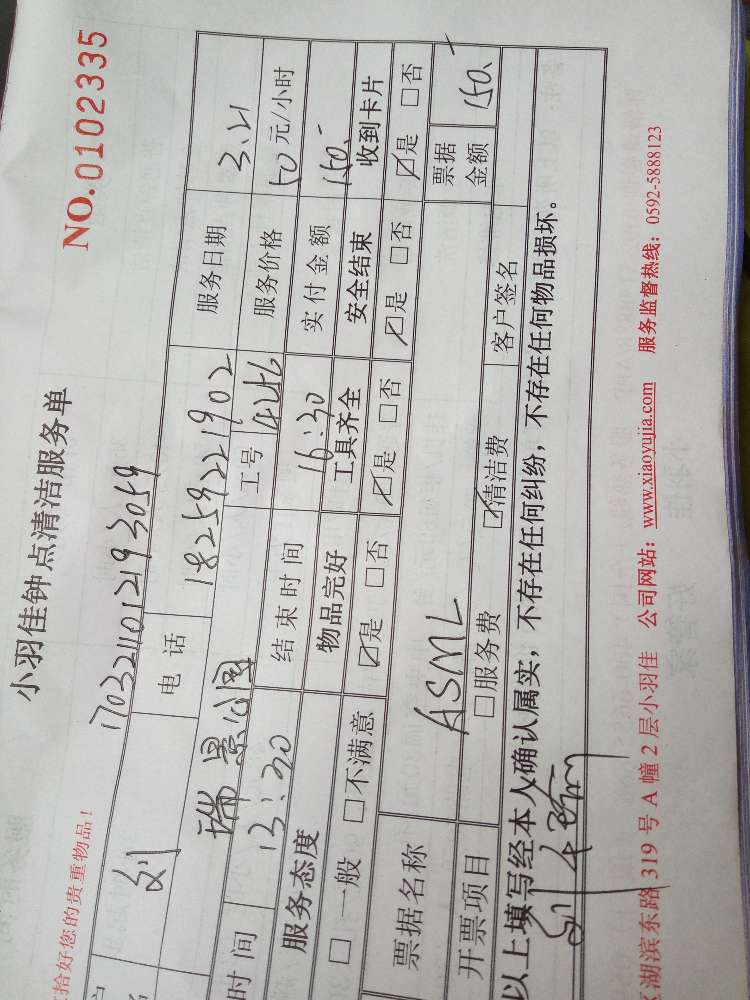 小羽佳钟点清洁服务单
NO.0102335
拾好您的贵重物品！
1703211012193059
刘 电话 18259221902 服务日期 3.21
瑞景公园 工号 4446 服务价格 50元/小时
时间 13:30 结束时间 16:30 实付金额 150.-
服务态度 物品完好 工具齐全 安全结束 收到卡片
□一般 □不满意 ☑是 □否 ☑是 □否 ☑是 □否 ☑是 □否
票据名称 ASML 票据金额 150.
开票项目 □服务费 ☑清洁费 客户签名
以上填写经本人确认属实，不存在任何纠纷，不存在任何物品损坏。
湖滨东路319号A幢2层小羽佳 公司网站：www.xiaoyujia.com 服务监督热线：0592-5888123